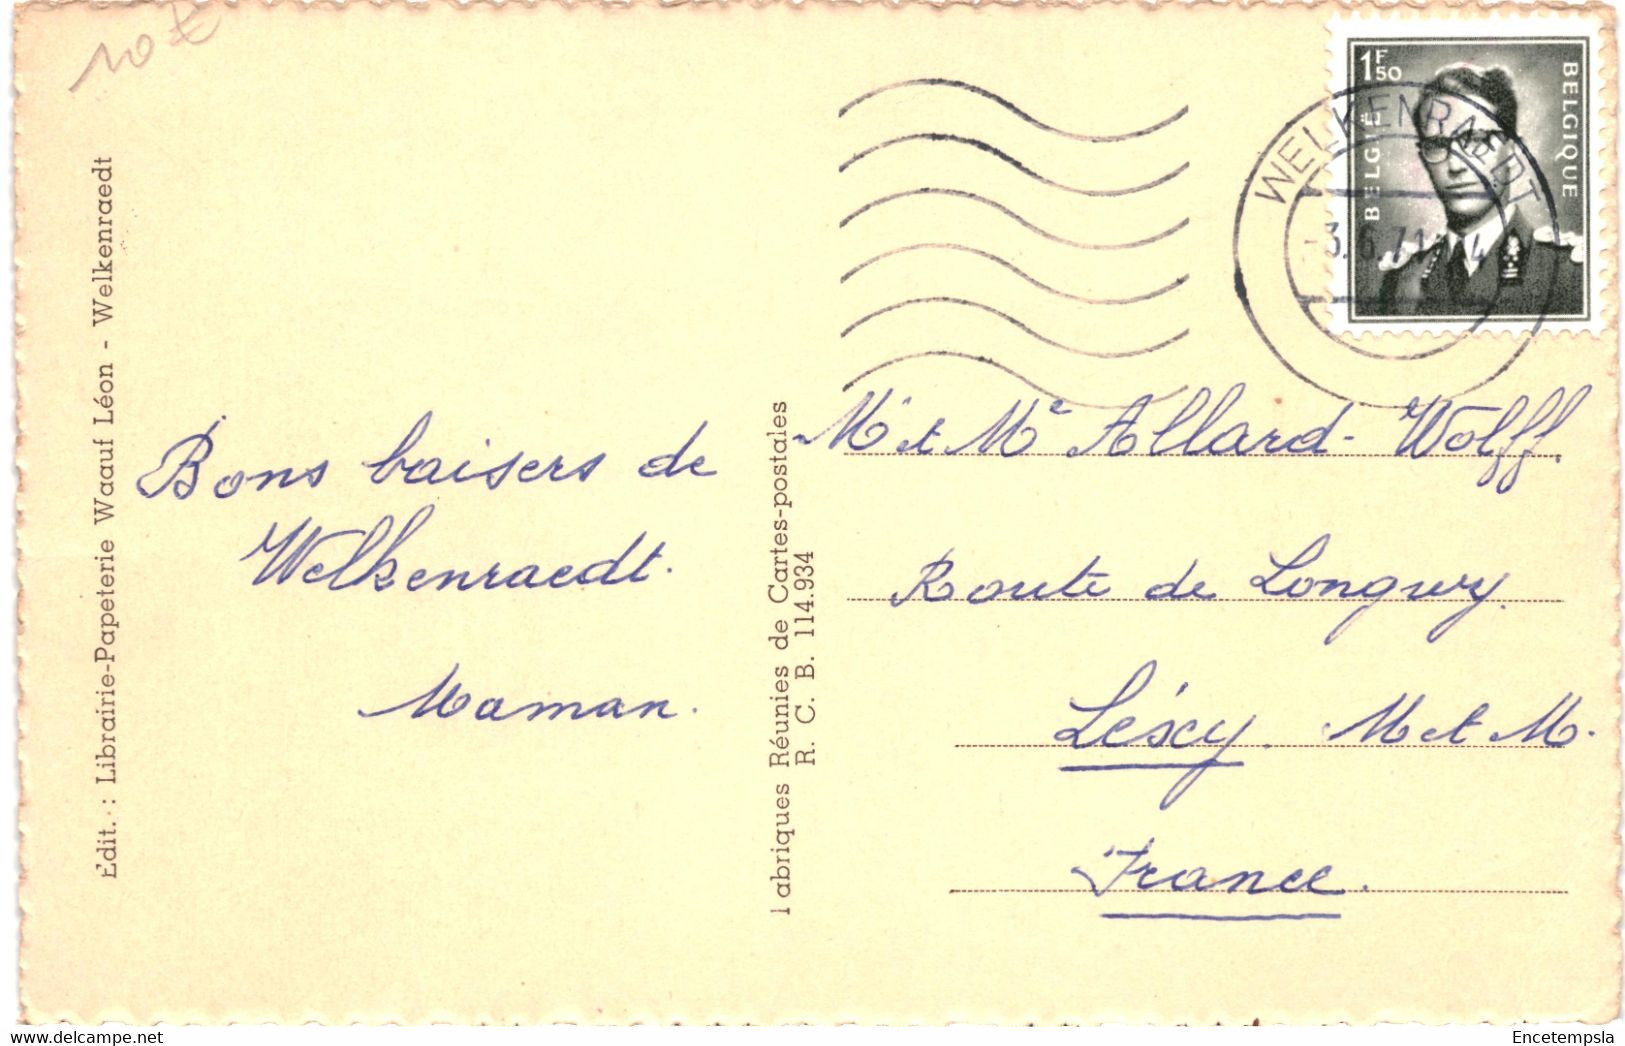 10 €
Edit. : Librairie-Papeterie Waauf Léon - Welkenraedt
Bons baisers de
Welkenraedt.
Maman.
Fabriques Réunies de Cartes-postales
R. C. B. 114.934
1F50
BELGIË
BELGIQUE
WELKENRAEDT
Mr et Me Allard-Wolff.
Route de Longwy.
Léxy. M et M.
France.
Encetempsla